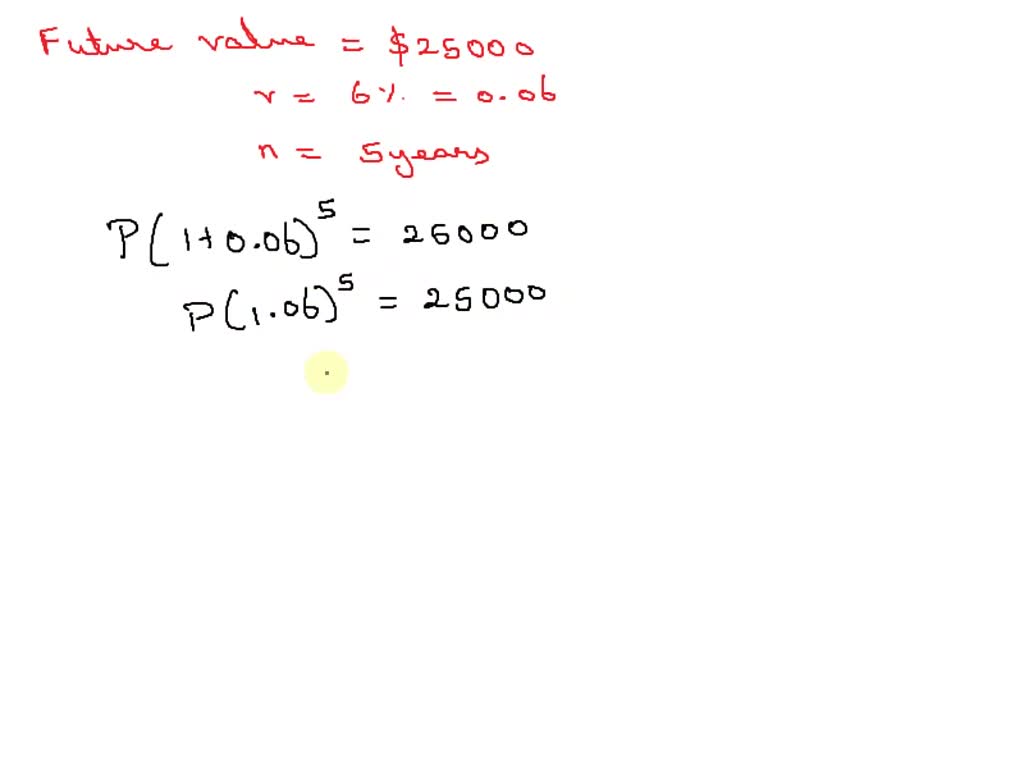 Future value = $25000
r = 6% = 0.06
n = 5years
P(1+0.06)^5 = 25000
P(1.06)^5 = 25000